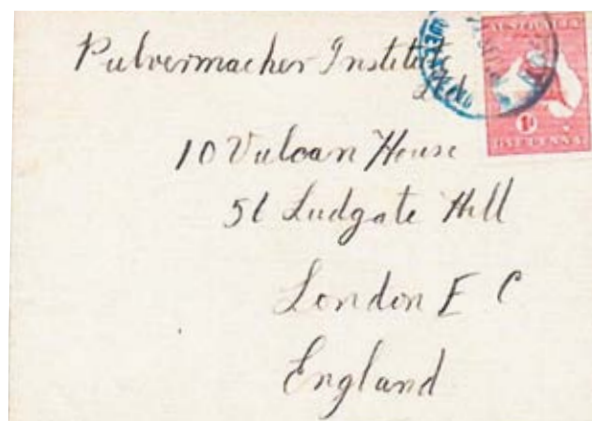 Pulvermacher Institute
Ltd
10 Vulcan House
56 Ludgate Hill
London E C
England
AUSTRALIA
1D
ONE PENNY